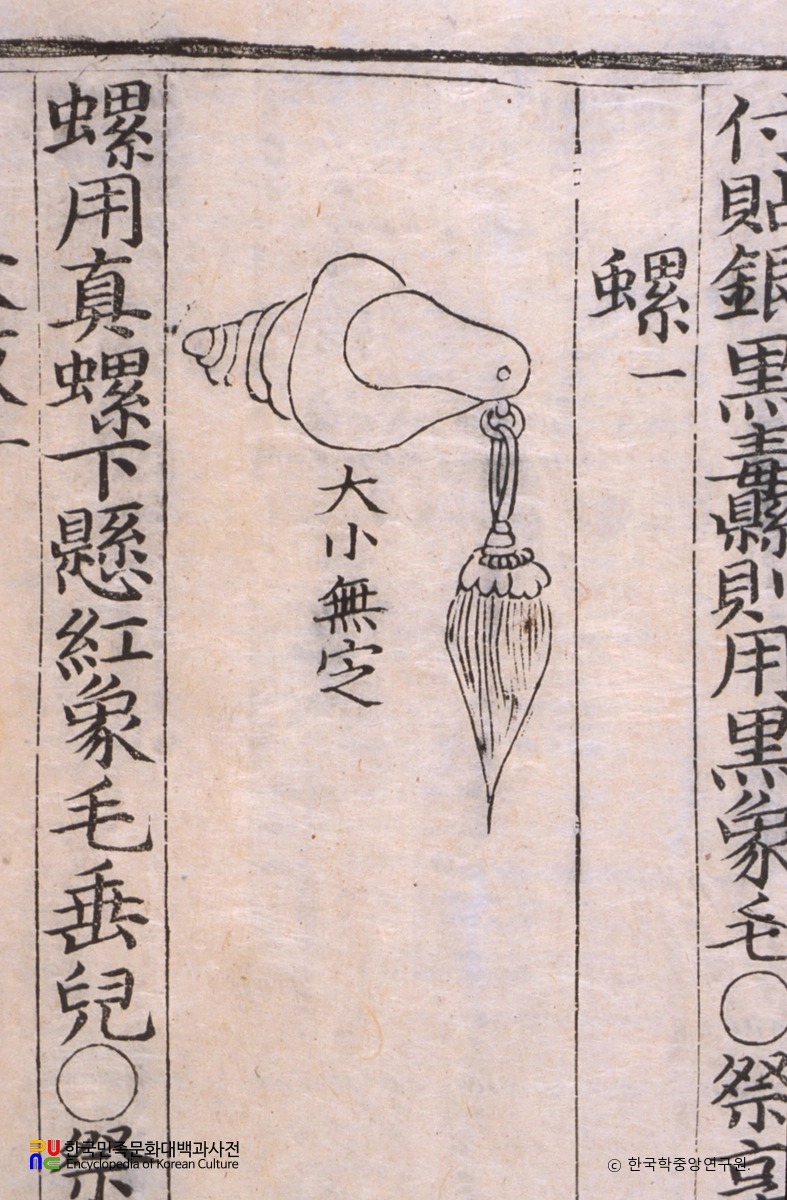 付貼銀黑纛縣則用黑象毛○祭享
螺一
大小無定
螺用真螺下懸紅象毛垂兒○祭
한국민족문화대백과사전
Encyclopedia of Korean Culture
© 한국학중앙연구원.